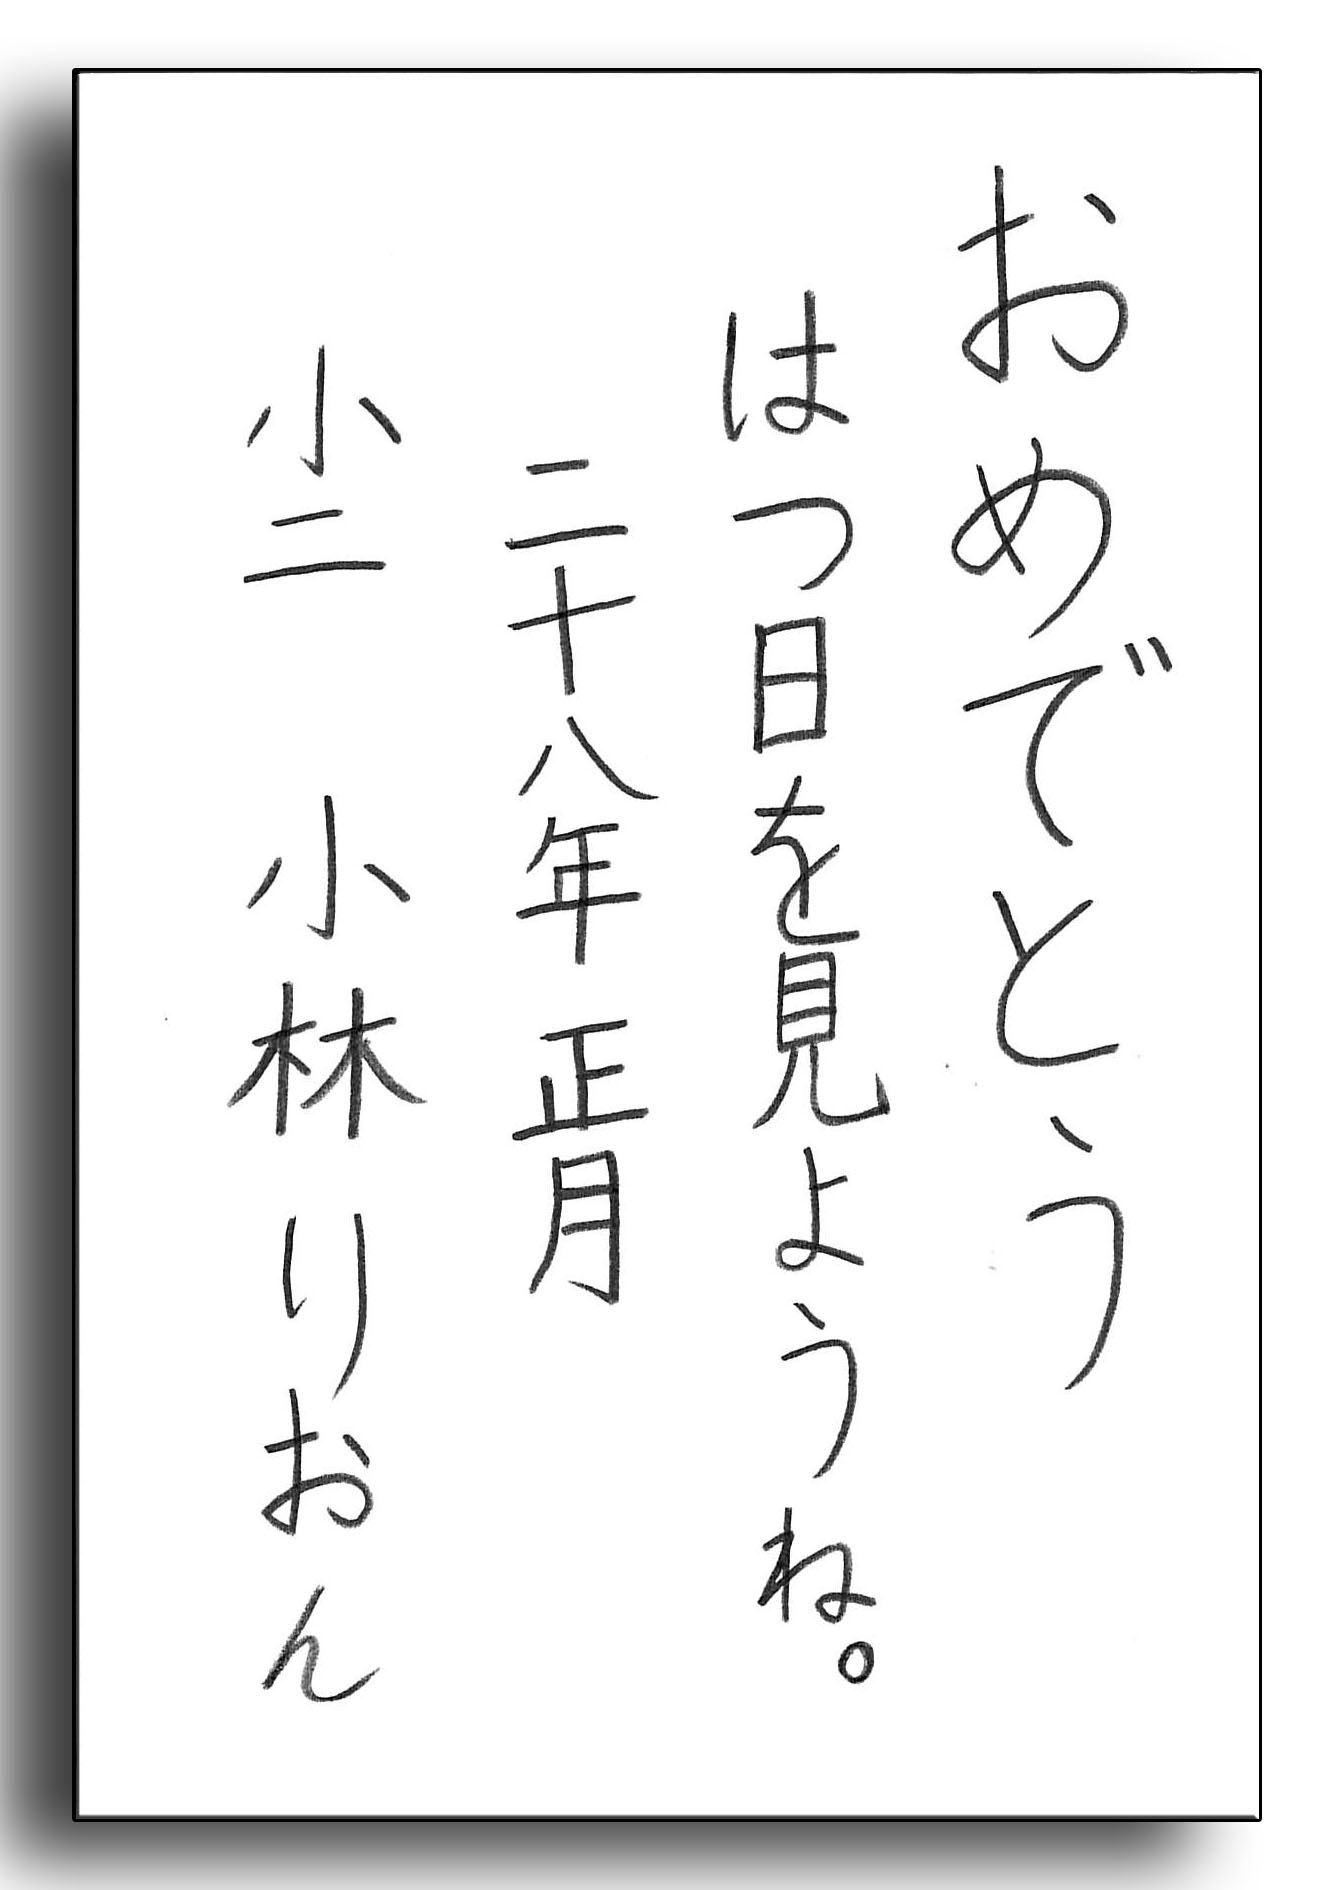 おめでとう
はつ日を見ようね。
二十八年 正月
小二 小林りおん